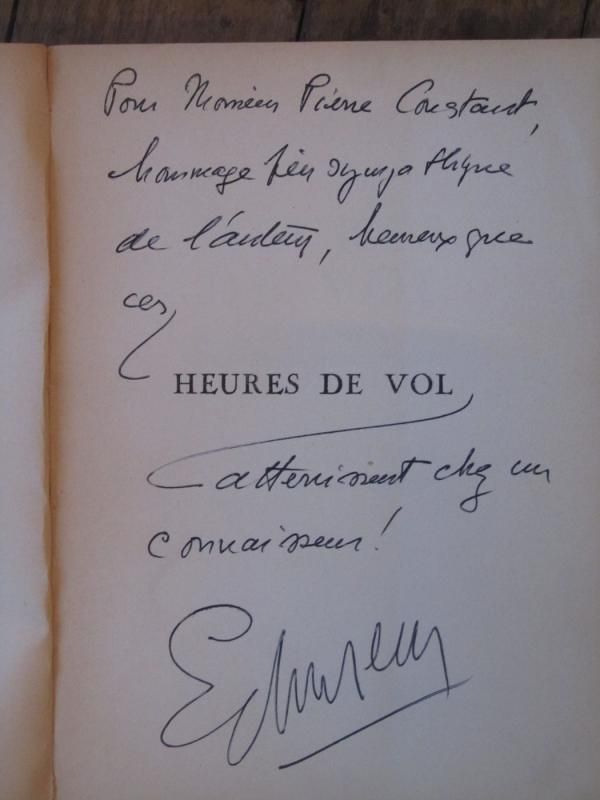 Pour Monsieur Pierre Constant,
hommage bien sympathique
de l'auteur, heureux que
ces
HEURES DE VOL
atterrissent chez un
connaisseur!